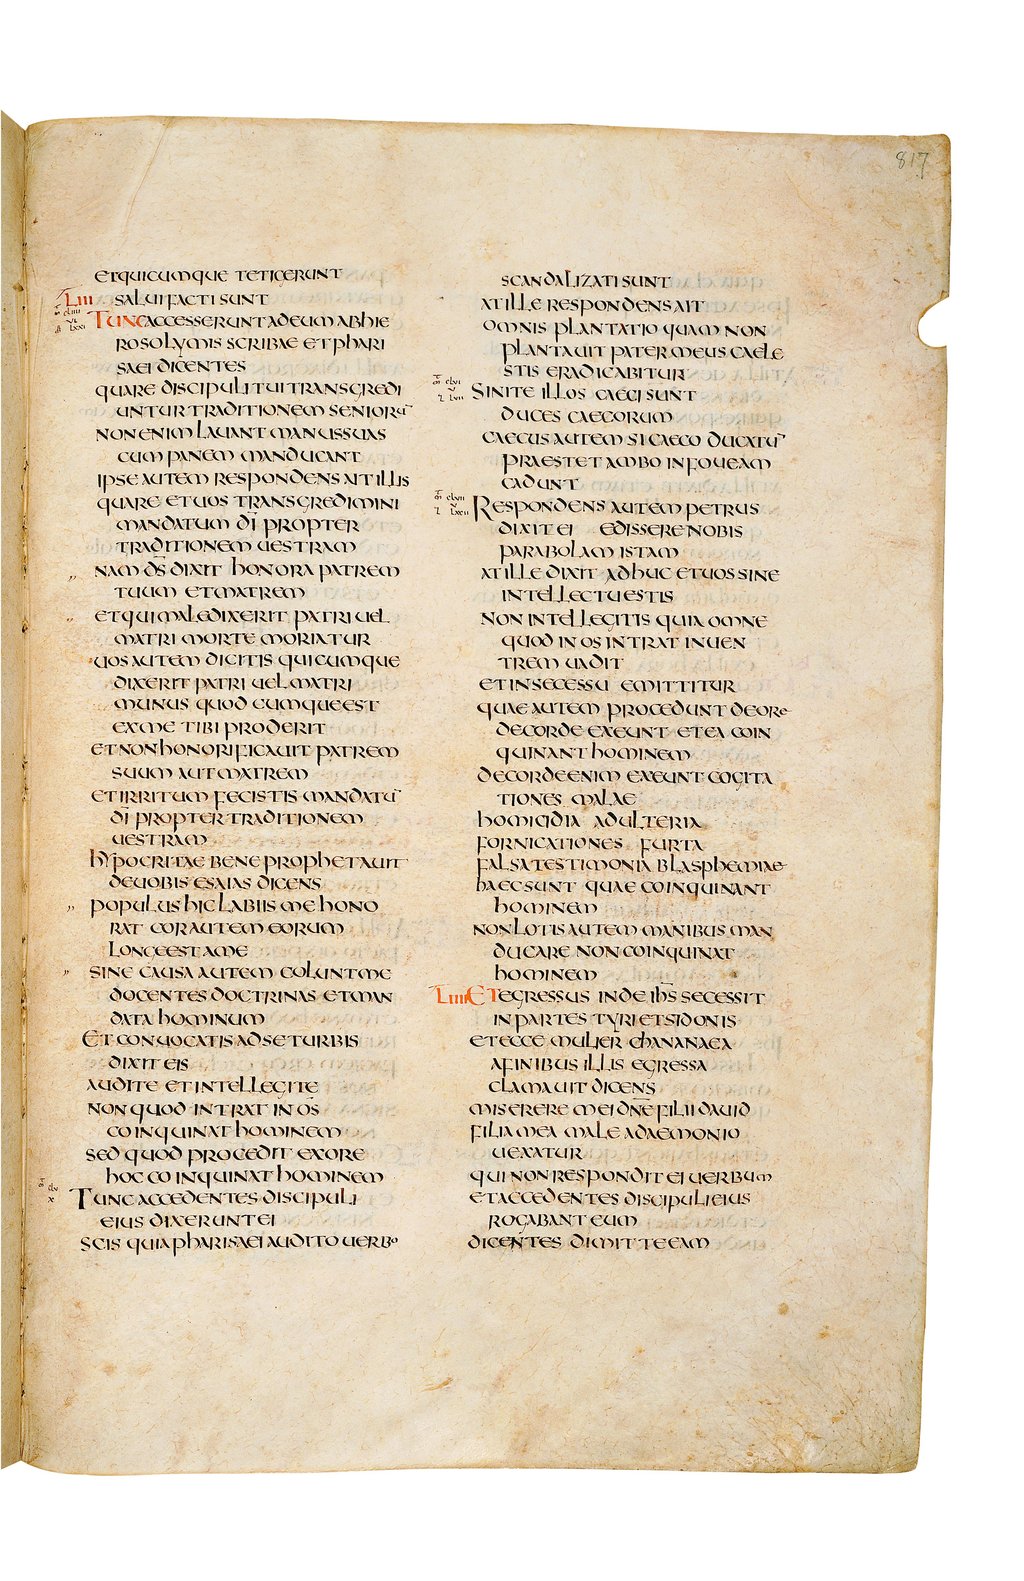 817
ETQUICUMQUE TETIGERUNT
LIII SALUI FACTI SUNT
TUNC ACCESSERUNT AD EUM AB HIE
ROSOLYMIS SCRIBAE ET PHARI
SAEI DICENTES
QUARE DISCIPULI TUI TRANSGREDI
UNTUR TRADITIONEM SENIORŪ
NON ENIM LAUANT MANUS SUAS
CUM PANEM MANDUCANT
IPSE AUTEM RESPONDENS AIT ILLIS
QUARE ET UOS TRANSGREDIMINI
MANDATUM DĪ PROPTER
TRADITIONEM UESTRAM
NAM DS̄ DIXIT HONORA PATREM
TUUM ET MATREM
ET QUI MALEDIXERIT PATRI UEL
MATRI MORTE MORIATUR
UOS AUTEM DICITIS QUICUMQUE
DIXERIT PATRI UEL MATRI
MUNUS QUOD CUMQUE EST
EX ME TIBI PRODERIT
ET NON HONORIFICAUIT PATREM
SUUM AUT MATREM
ET IRRITUM FECISTIS MANDATŪ
DĪ PROPTER TRADITIONEM
UESTRAM
HYPOCRITAE BENE PROPHETAUIT
DE UOBIS ESAIAS DICENS
POPULUS HIC LABIIS ME HONO
RAT COR AUTEM EORUM
LONGE EST A ME
SINE CAUSA AUTEM COLUNT ME
DOCENTES DOCTRINAS ET MAN
DATA HOMINUM
ET CONUOCATIS AD SE TURBIS
DIXIT EIS
AUDITE ET INTELLEGITE
NON QUOD INTRAT IN OS
COINQUINAT HOMINEM
SED QUOD PROCEDIT EX ORE
HOC COINQUINAT HOMINEM
TUNC ACCEDENTES DISCIPULI
EIUS DIXERUNT EI
SCIS QUIA PHARISAEI AUDITO UERBO
SCANDALIZATI SUNT
AT ILLE RESPONDENS AIT
OMNIS PLANTATIO QUAM NON
PLANTAUIT PATER MEUS CAELE
STIS ERADICABITUR
SINITE ILLOS CAECI SUNT
DUCES CAECORUM
CAECUS AUTEM SI CAECO DUCATŪ
PRAESTET AMBO IN FOUEAM
CADUNT
RESPONDENS AUTEM PETRUS
DIXIT EI EDISSERE NOBIS
PARABOLAM ISTAM
AT ILLE DIXIT ADHUC ET UOS SINE
INTELLECTU ESTIS
NON INTELLEGITIS QUIA OMNE
QUOD IN OS INTRAT IN UEN
TREM UADIT
ET IN SECESSU EMITTITUR
QUAE AUTEM PROCEDUNT DE ORE
DE CORDE EXEUNT ET EA COIN
QUINANT HOMINEM
DE CORDE ENIM EXEUNT COGITA
TIONES MALAE
HOMICIDIA ADULTERIA
FORNICATIONES FURTA
FALSA TESTIMONIA BLASPHEMIAE
HAEC SUNT QUAE COINQUINANT
HOMINEM
NON LOTIS AUTEM MANIBUS MAN
DUCARE NON COINQUINAT
HOMINEM
LIIII ET EGRESSUS INDE IHS̄ SECESSIT
IN PARTES TYRI ET SIDONIS
ET ECCE MULIER CHANANAEA
A FINIBUS ILLIS EGRESSA
CLAMAUIT DICENS
MISERERE MEI DNE̅ FILII DAUID
FILIA MEA MALE A DAEMONIO
UEXATUR
QUI NON RESPONDIT EI UERBUM
ET ACCEDENTES DISCIPULI EIUS
ROGABANT EUM
DICENTES DIMITTE EAM